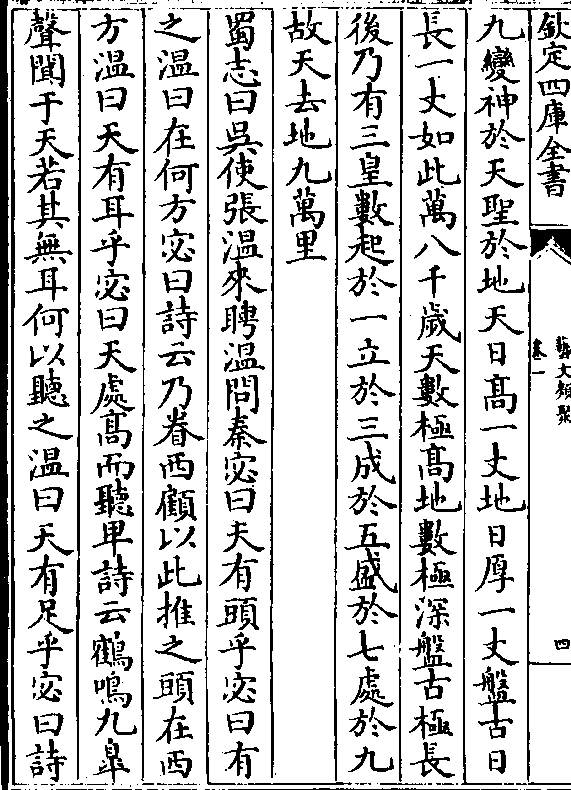 欽定四庫全書
藝文類聚
卷一
四
九變神於天聖於地天日髙一丈地日厚一丈盤古日
長一丈如此萬八千歲天數極髙地數極深盤古極長
後乃有三皇數起於一立於三成於五盛於七處於九
故天去地九萬里
蜀志曰吳使張溫來聘溫問秦宓曰天有頭乎宓曰有
之溫曰在何方宓曰詩云乃眷西顧以此推之頭在西
方溫曰天有耳乎宓曰天處髙而聽卑詩云鶴鳴九臯
聲聞于天若其無耳何以聽之溫曰天有足乎宓曰詩